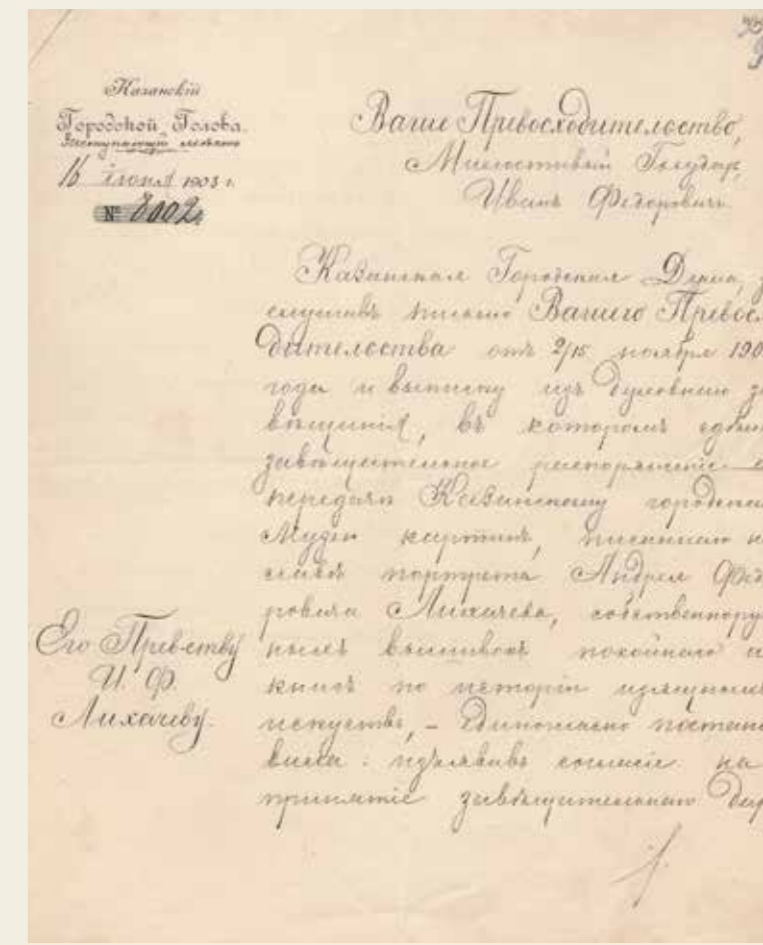 Казанскій
Городской Голова.
Заступающій мѣсто
16 іюня 1903 г.
№ 8002.
Ваше Превосходительство,
Милостивый Государь,
Иванъ Федоровичъ.
Казанская Городская Дума, за
слушавъ письмо Вашего Превосхо
дительства отъ 2/15 ноября 190
года и выписку изъ духовнаго за
вѣщанія, въ которомъ
завѣщательное распоряженіе о
передачѣ Казанскому городско
Музею картинъ, писаннаго
портрета Андрея Фед
ровича Лихачева, собственнору
ныхъ вышивокъ покойнаго и
книгъ по исторіи изящныхъ
искуствъ, – единогласно постано
вила: изъявивъ согласіе на
принятіе завѣщательнаго дар
Его Прев-ству
И. Ф.
Лихачеву.